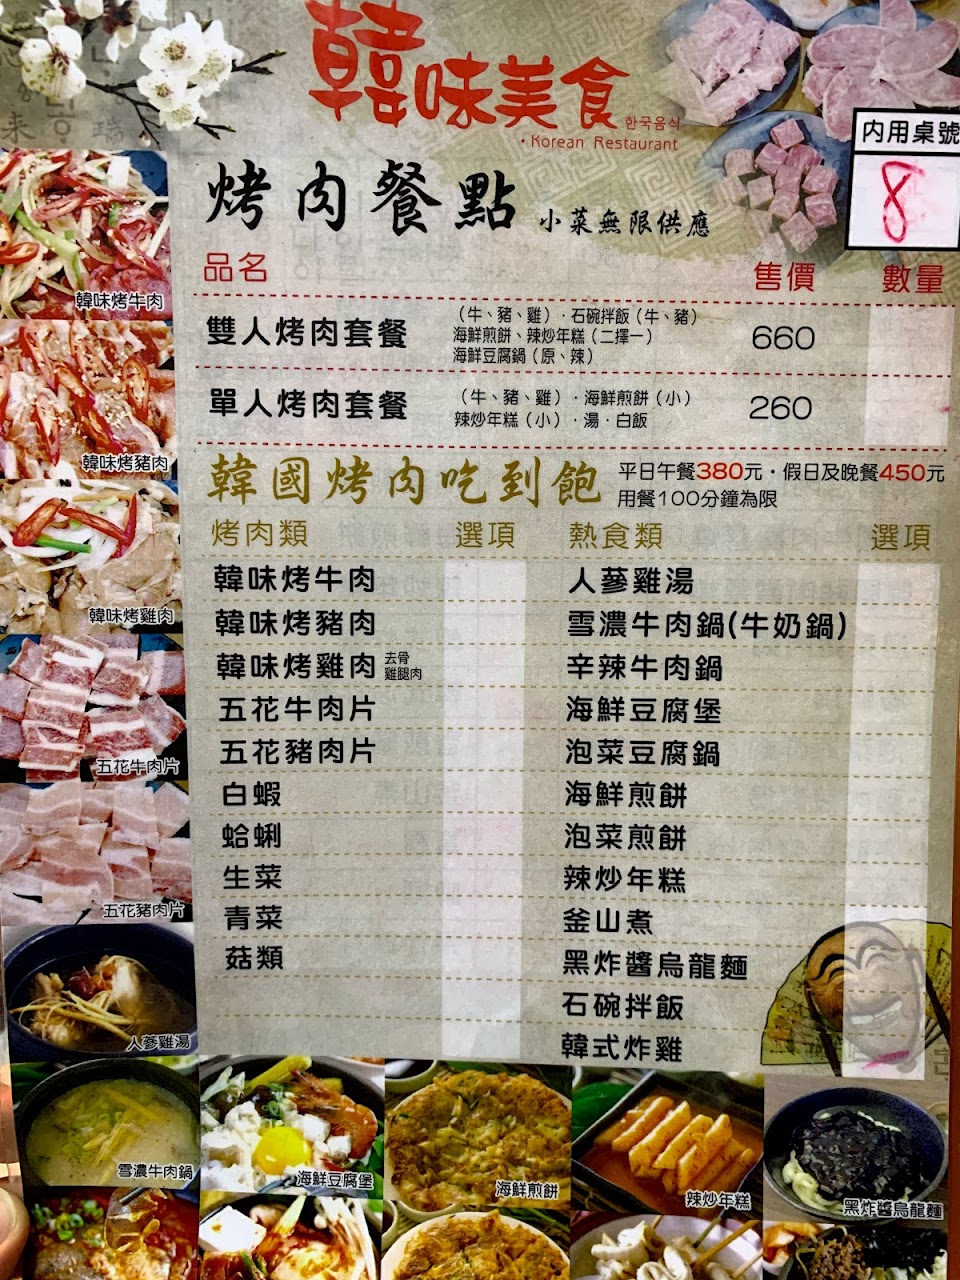 韓味美食
한국음식
• Korean Restaurant
內用桌號
8
烤肉餐點 小菜無限供應
品名 售價 數量
雙人烤肉套餐 (牛、豬、雞)．石碗拌飯(牛、豬) 660
海鮮煎餅、辣炒年糕(二擇一)
海鮮豆腐鍋(原、辣)
單人烤肉套餐 (牛、豬、雞)．海鮮煎餅(小) 260
辣炒年糕(小)．湯．白飯
韓國烤肉吃到飽 平日午餐380元．假日及晚餐450元
用餐100分鐘為限
烤肉類 選項 熱食類 選項
韓味烤牛肉 人蔘雞湯
韓味烤豬肉 雪濃牛肉鍋(牛奶鍋)
韓味烤雞肉 去骨雞腿肉 辛辣牛肉鍋
五花牛肉片 海鮮豆腐堡
五花豬肉片 泡菜豆腐鍋
白蝦 海鮮煎餅
蛤蜊 泡菜煎餅
生菜 辣炒年糕
青菜 釜山煮
菇類 黑炸醬烏龍麵
石碗拌飯
韓式炸雞
韓味烤牛肉
韓味烤豬肉
韓味烤雞肉
五花牛肉片
五花豬肉片
人蔘雞湯
雪濃牛肉鍋
海鮮豆腐堡
海鮮煎餅
辣炒年糕
黑炸醬烏龍麵